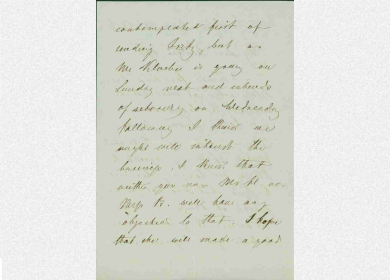 contemplated first of
sending Fritz, but as
Mr is going on
Sunday next and intends
of returning on Wednesday
following I think we
might well intrust the
business. I think that
neither you nor Mr nor
Miss K. will have any
objection to that. I hope
that she will make a good